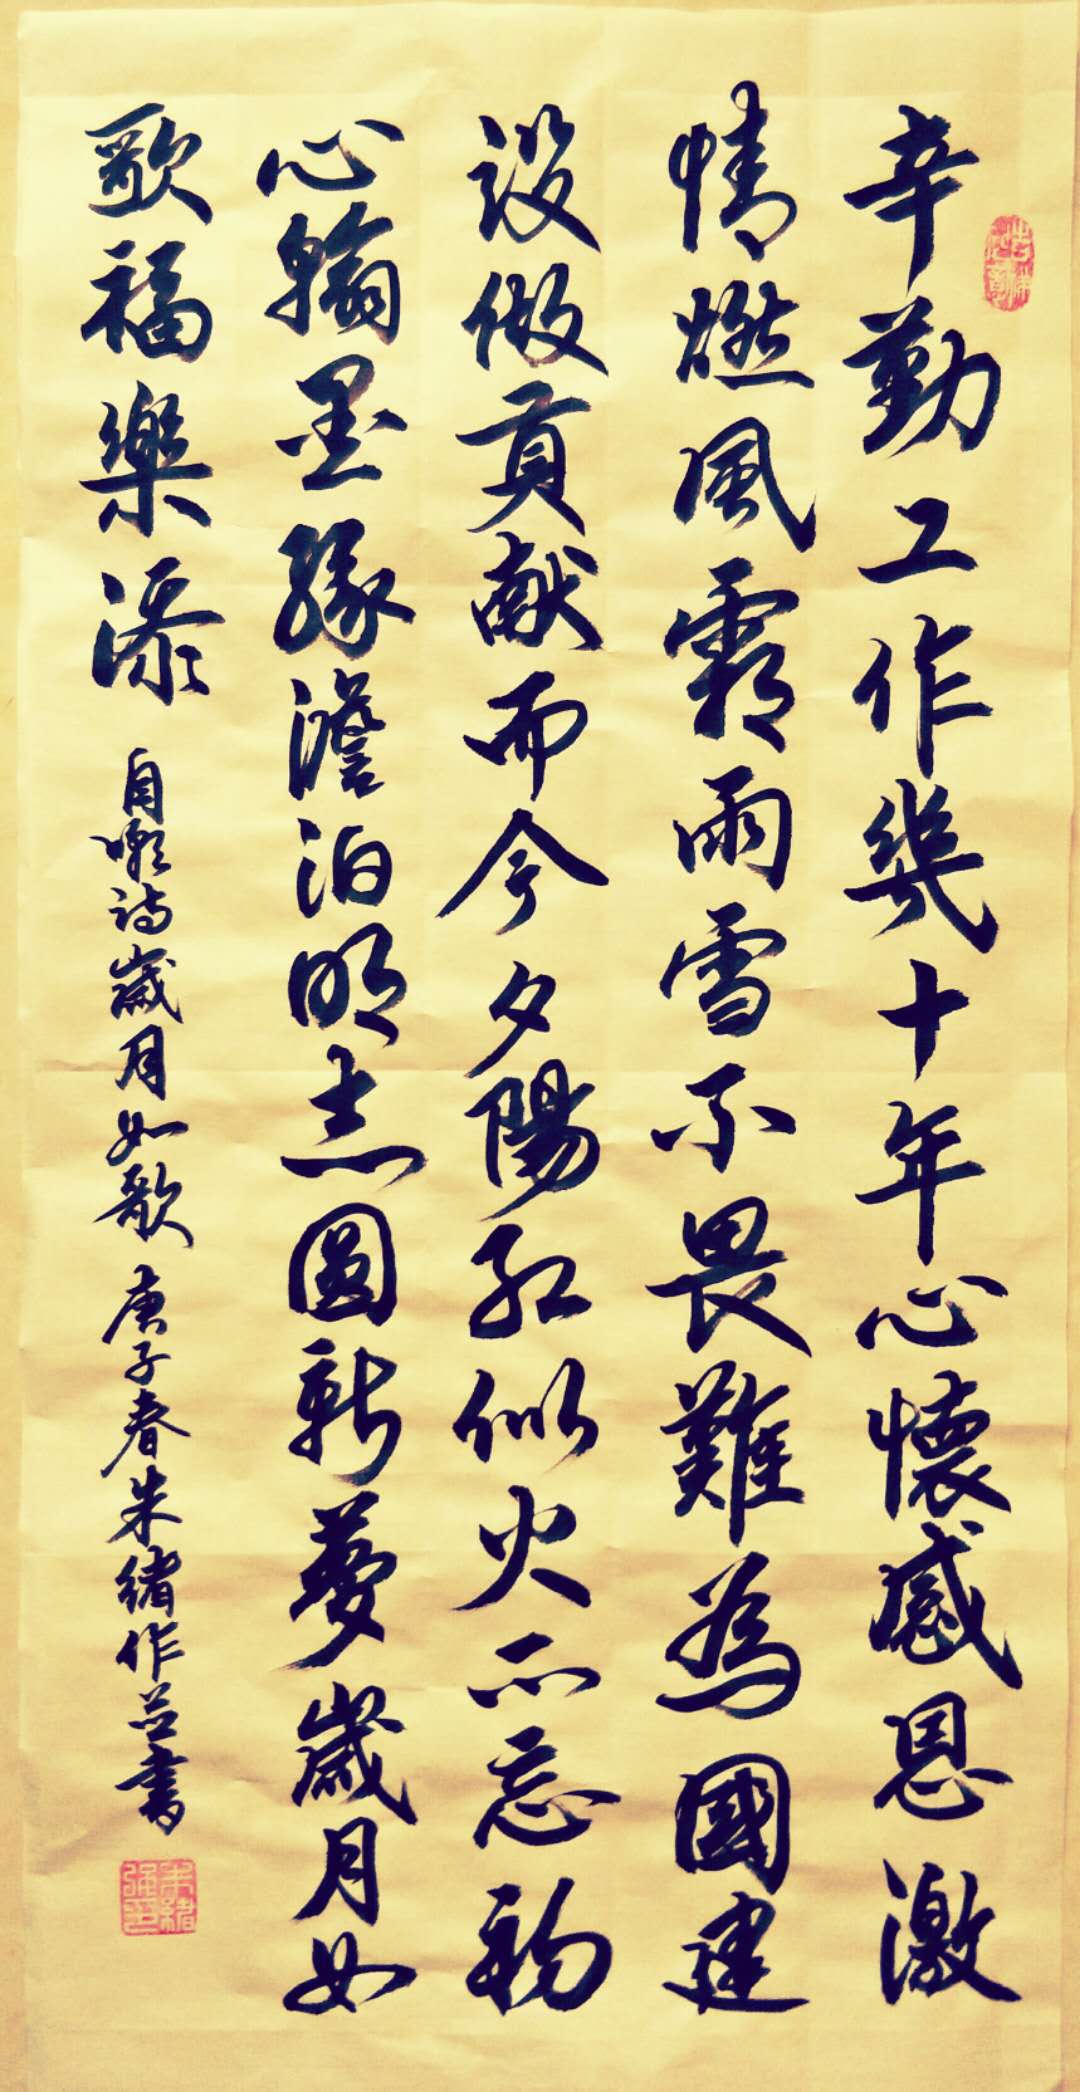 辛勤工作幾十年心懷感恩激
情燃風霜雨雪不畏難為國建
設做貢献而今夕陽红似火不忘初
心翰墨緣澹泊明志圆新夢歲月如
歌福樂添
自嘲詩歲月如歌 庚子春朱緒作并書